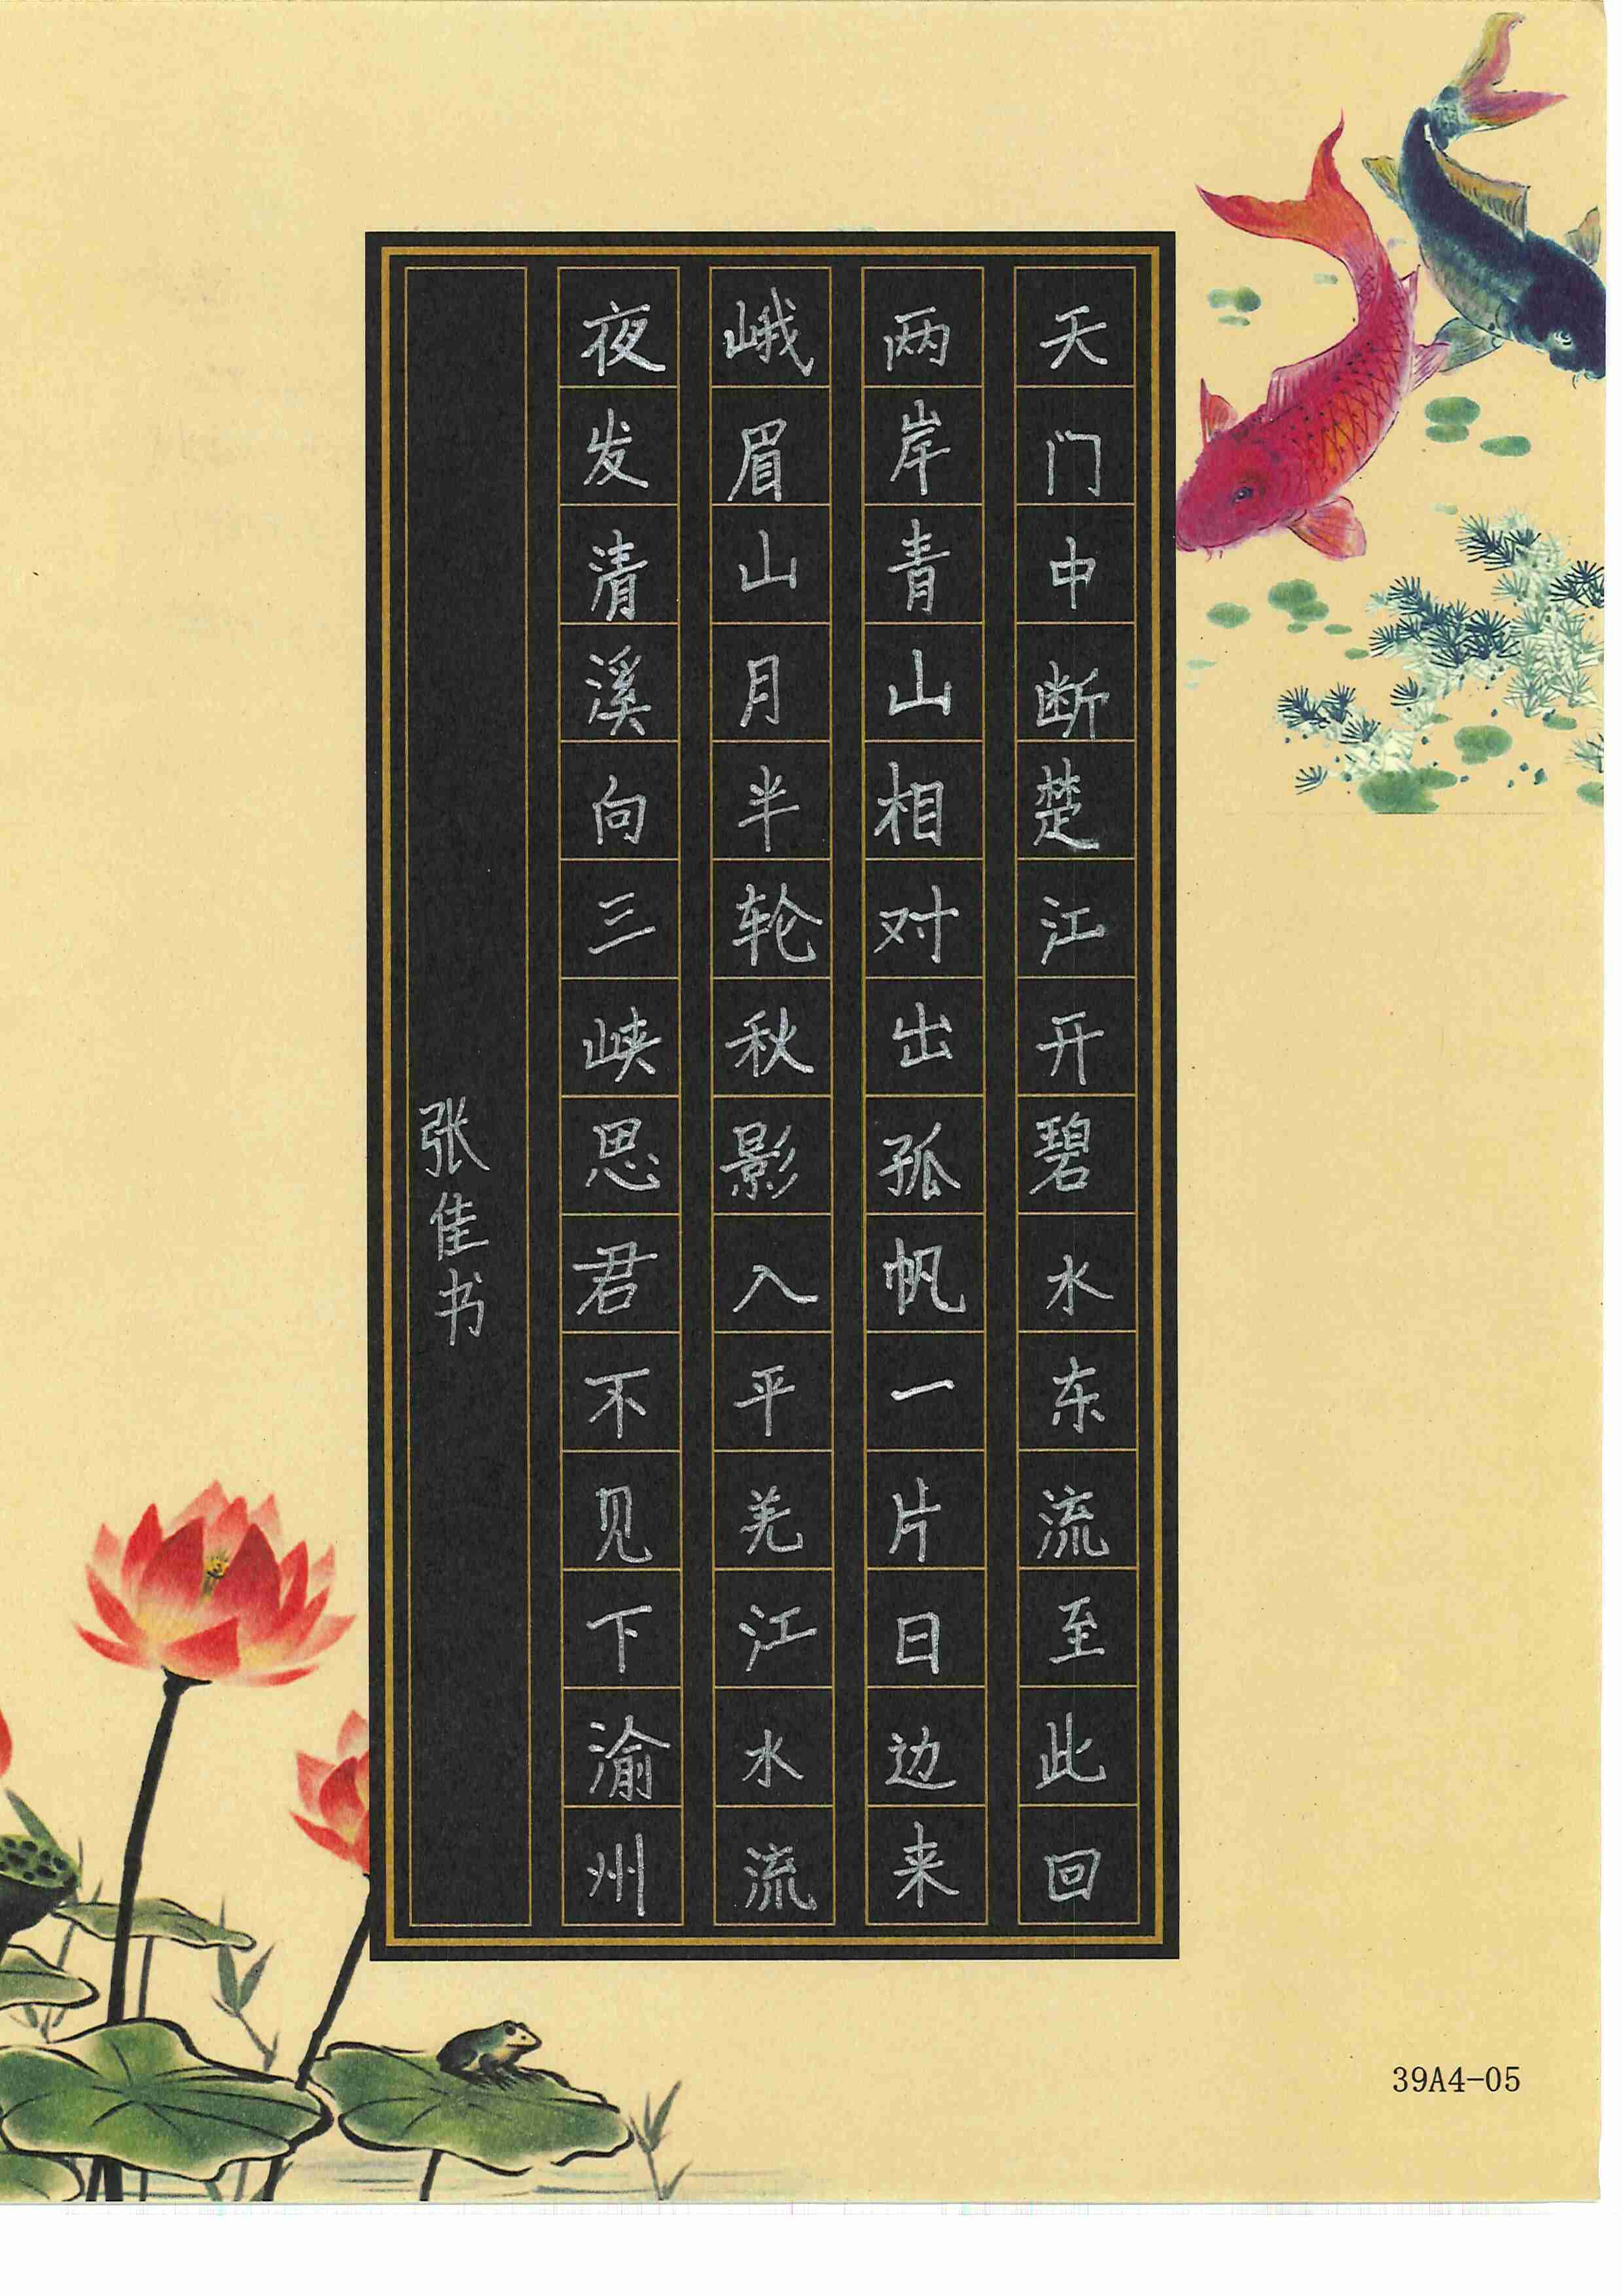 天门中断楚江开碧水东流至此回
两岸青山相对出孤帆一片日边来
峨眉山月半轮秋影入平羌江水流
夜发清溪向三峡思君不见下渝州
张佳书
39A4-05